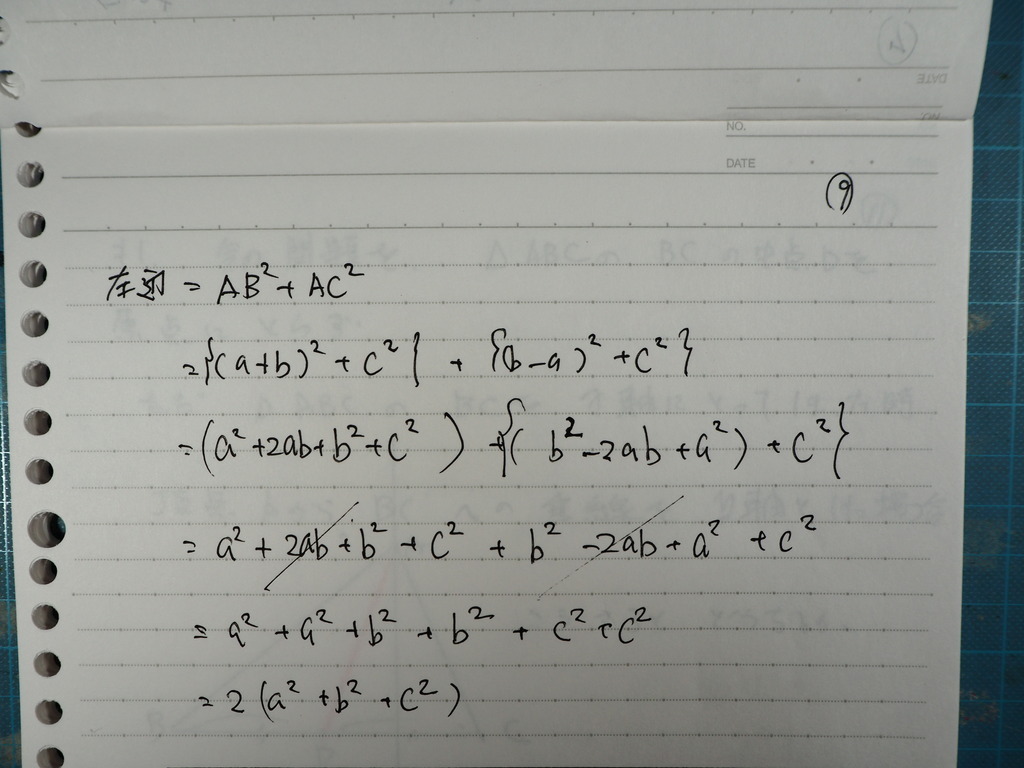 NO.
DATE
⑨
左辺 = AB² + AC²
= {(a+b)² + c²} + {(b-a)² + c²}
= (a² + 2ab + b² + c²) + {(b² - 2ab + a²) + c²}
= a² + 2ab + b² + c² + b² - 2ab + a² + c²
= a² + a² + b² + b² + c² + c²
= 2(a² + b² + c²)